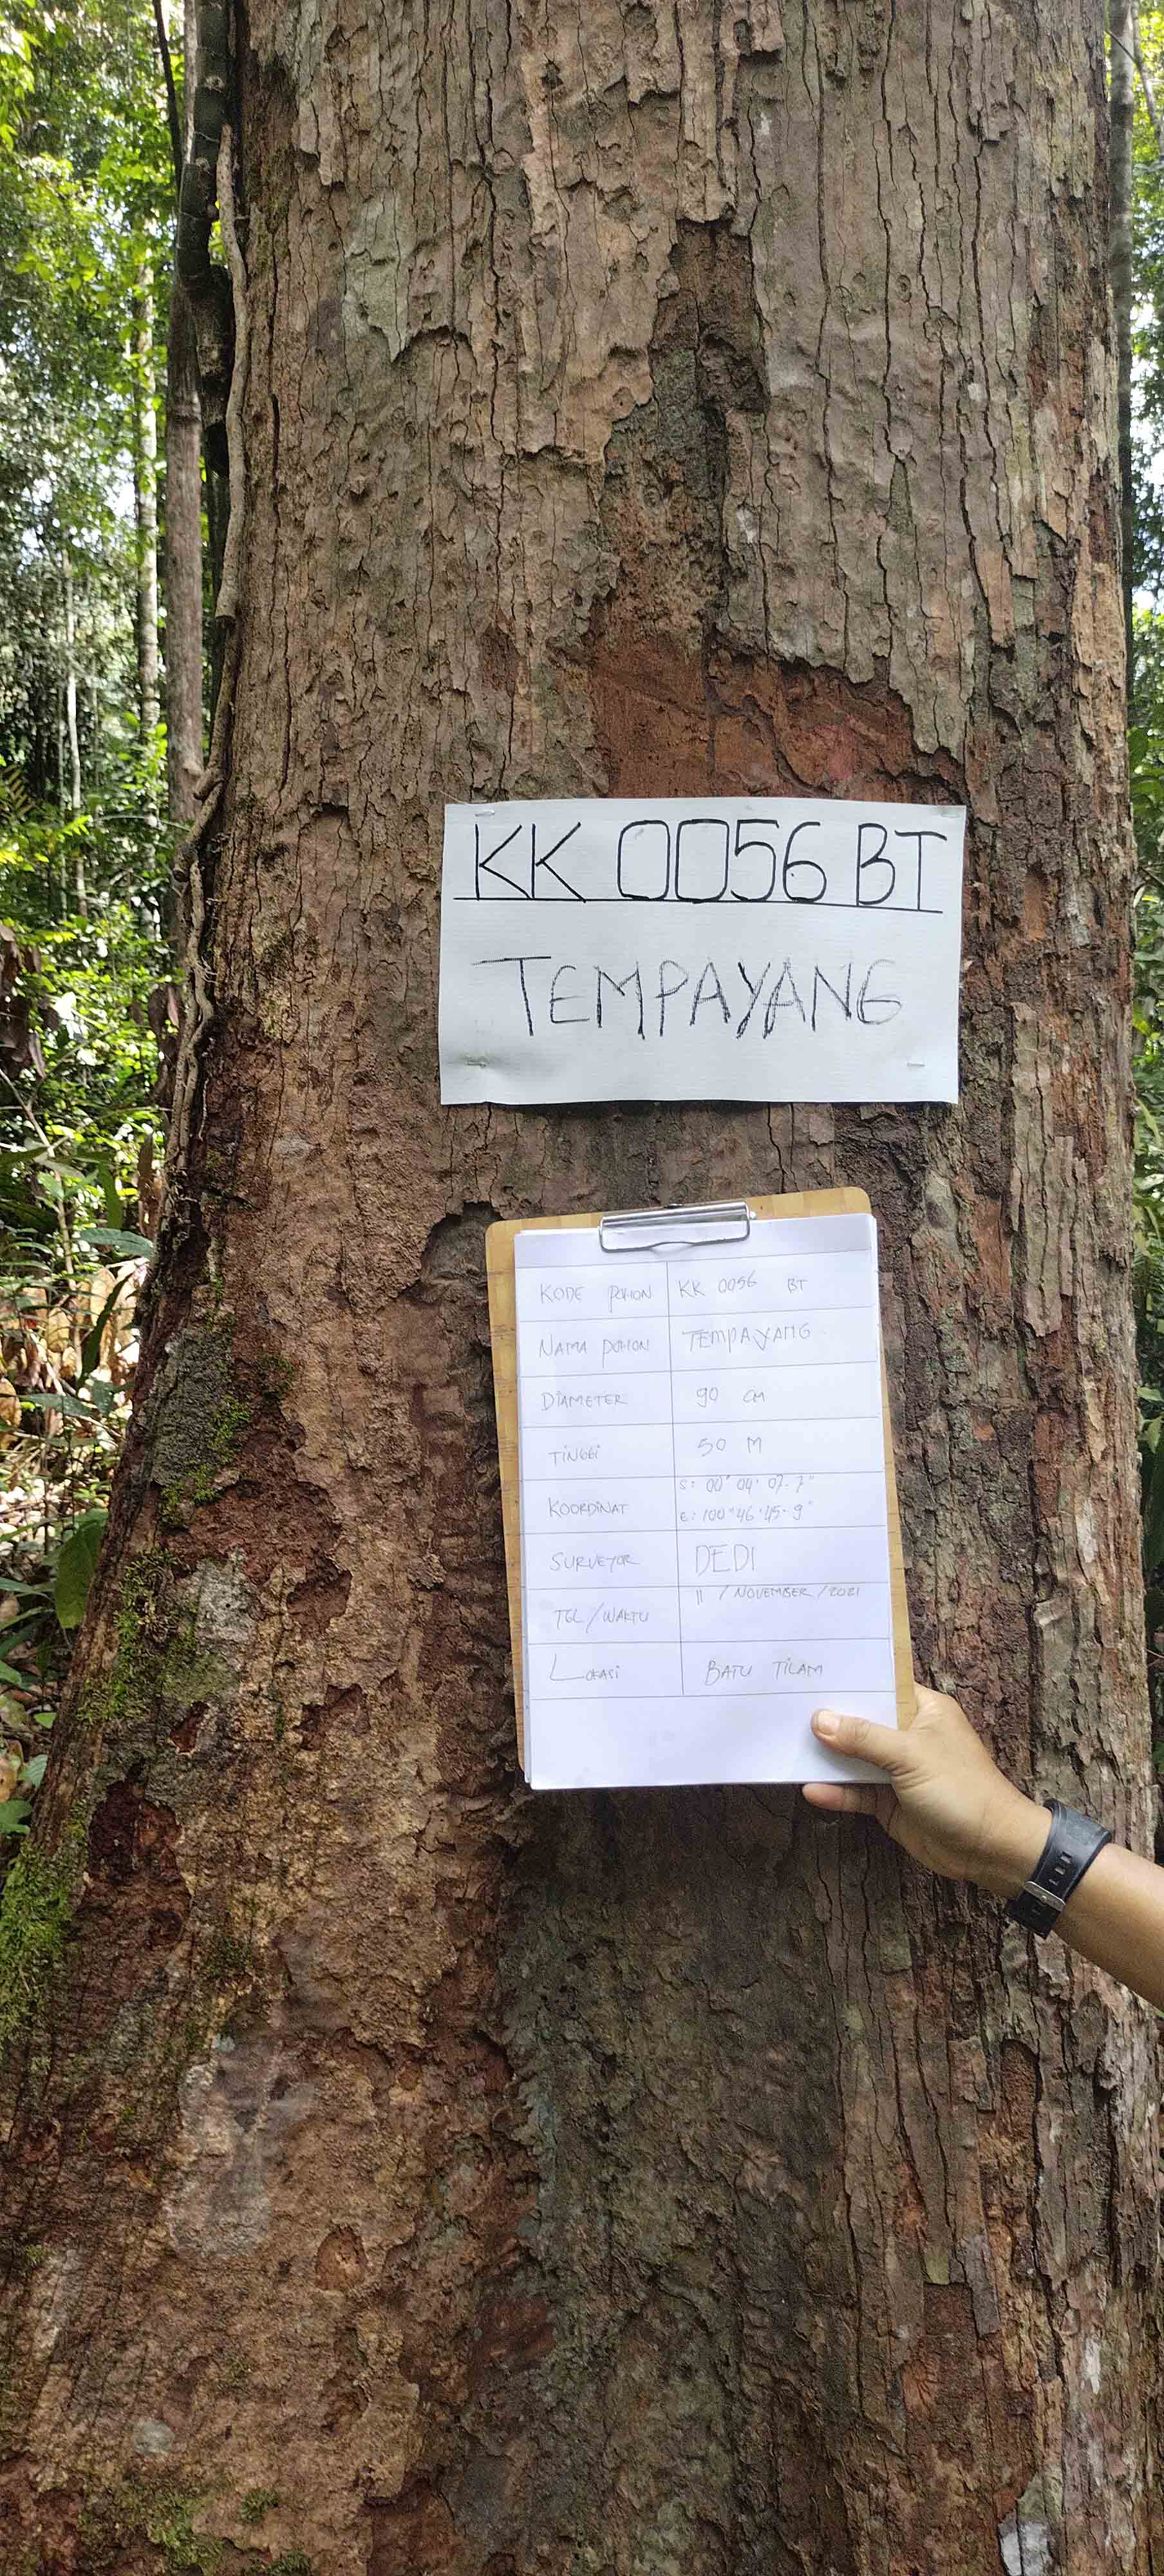 KK 0056 BT
TEMPAYANG
KODE POHON KK 0056 BT
NAMA POHON TEMPAYANG
DIAMETER 90 CM
TINGGI 50 M
KOORDINAT S: 00° 04' 07.7"
E: 100° 46' 45.9"
SURVEYOR DEDI
TGL/WAKTU 11 / NOVEMBER / 2021
LOKASI BATU TILAM